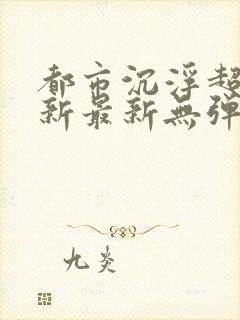 都市沉浮超
新最新無弹
九炎